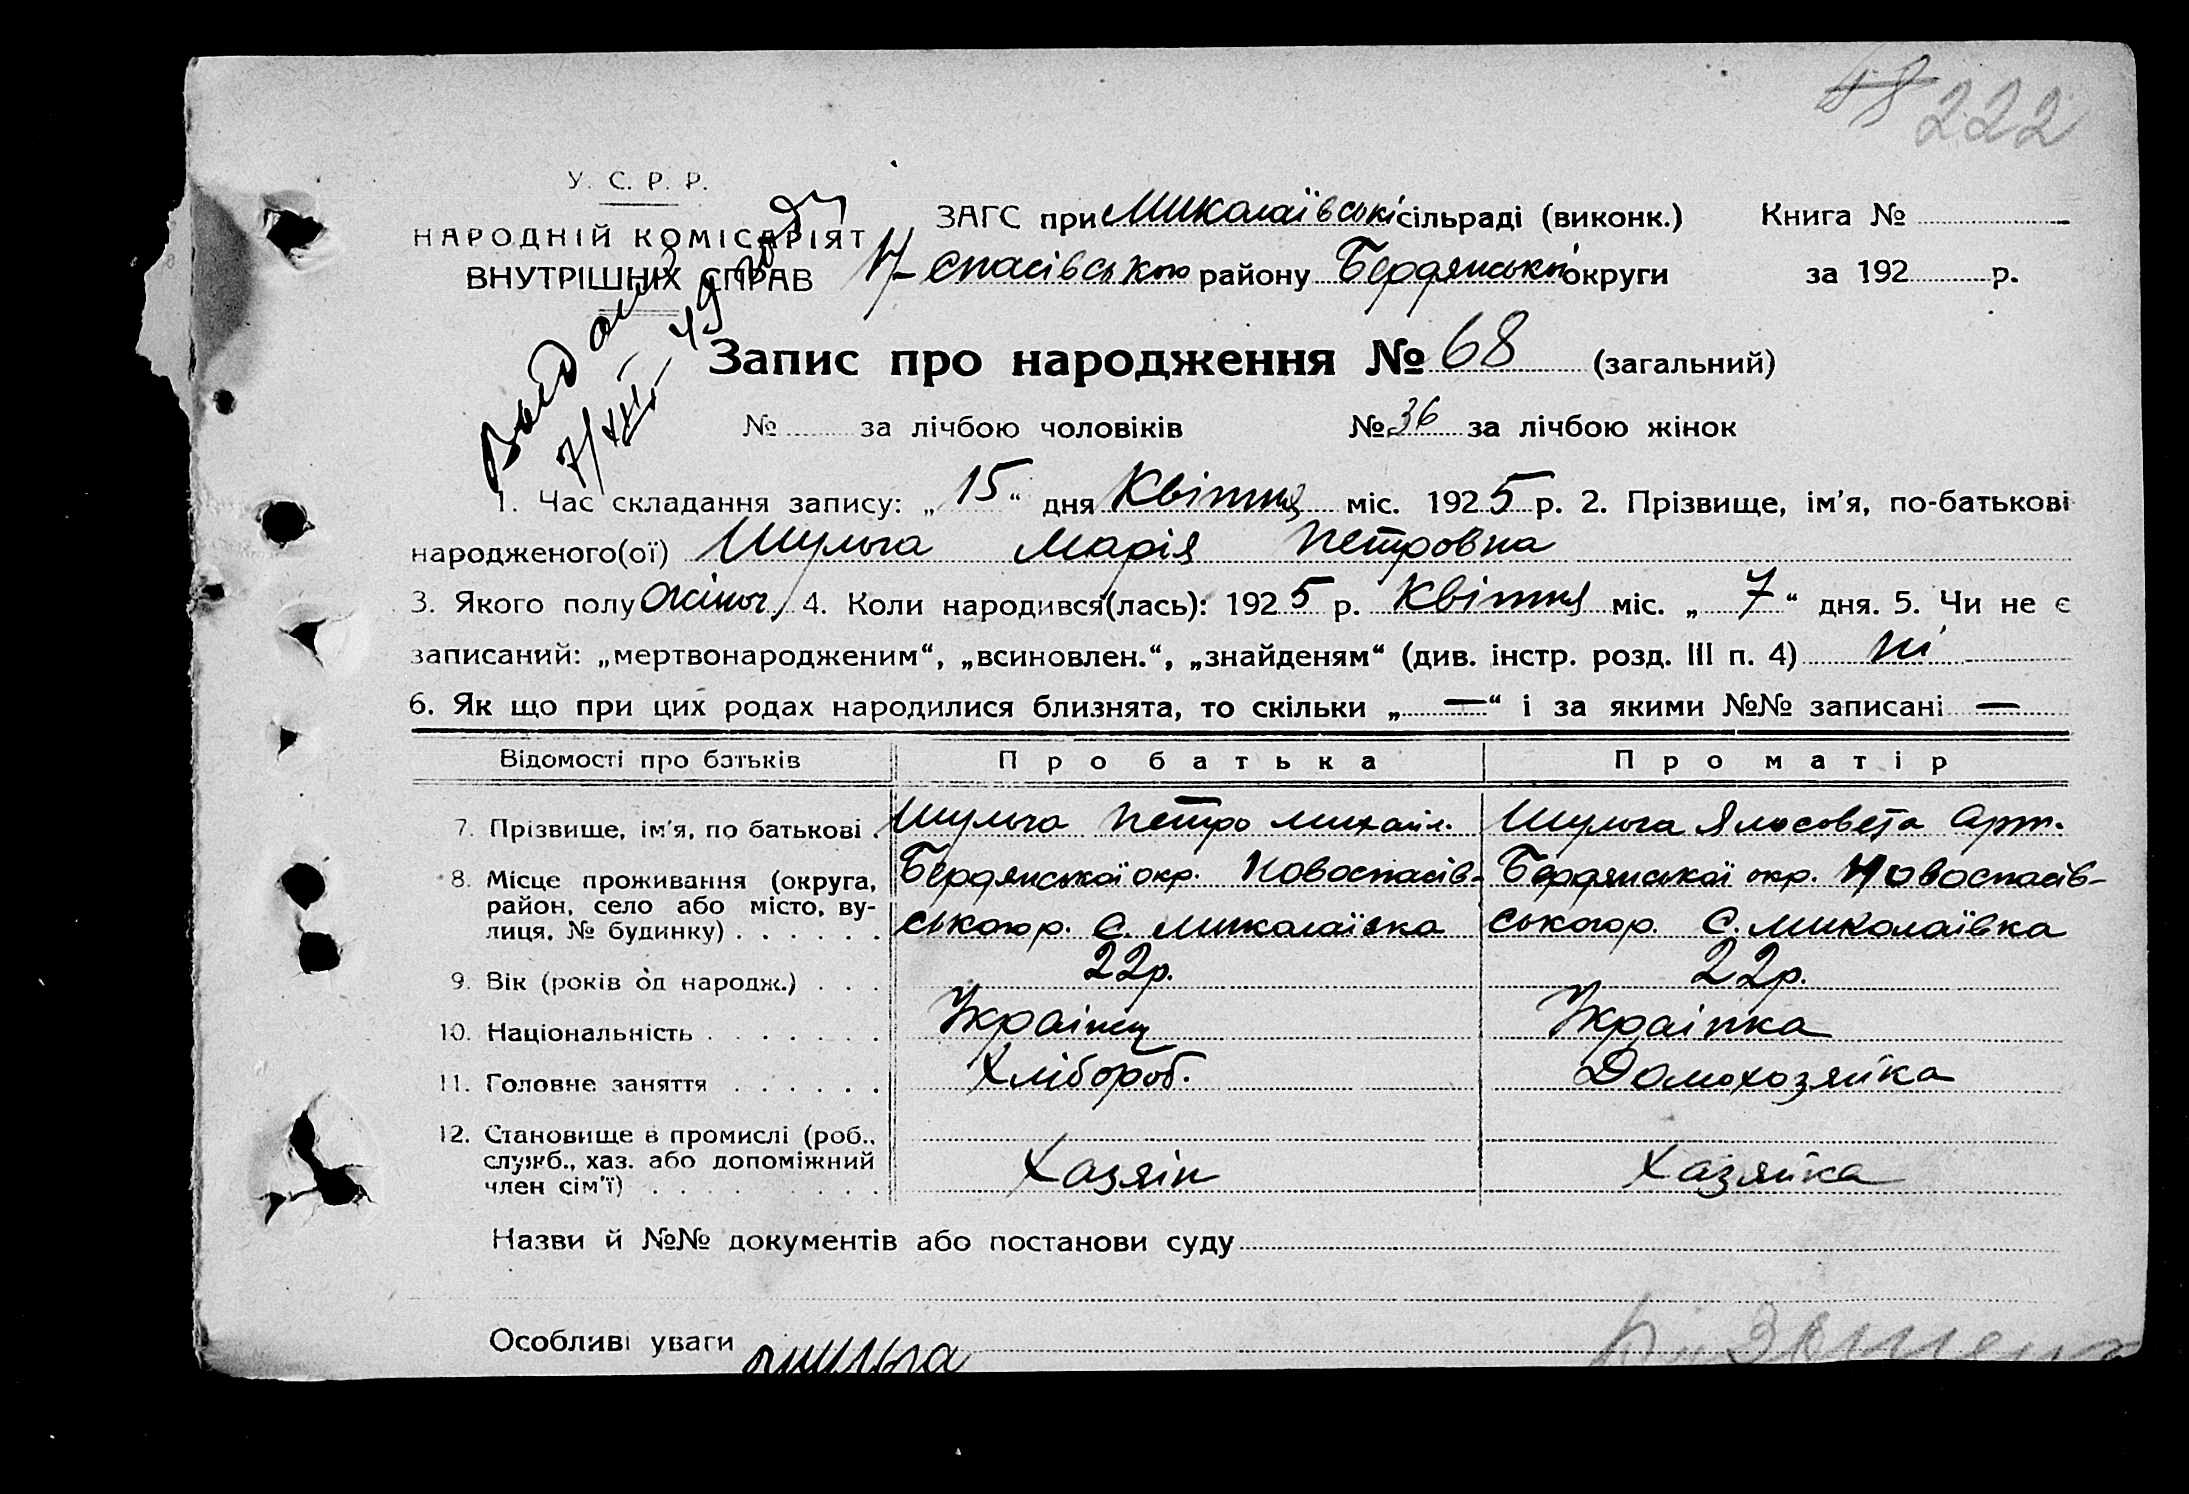 58 222
У. С. Р. Р.
НАРОДНІЙ КОМІСАРІЯТ
ВНУТРІШНІХ СПРАВ
ЗАГС при Миколаївські сільраді (виконк.) Книга №
Н-Спасівського району Бердянської округи за 192 р.
Запис про народження № 68 (загальний)
№ за лічбою чоловіків № 36 за лічбою жінок
1. Час складання запису: „15“ дня Квітня міс. 1925 р. 2. Прізвище, ім'я, по-батькові
народженого(ої) Шульга Марія Петровна
3. Якого полу жіноч. 4. Коли народився(лась): 1925 р. Квітня міс. „7“ дня. 5. Чи не є
записаний: „мертвонародженим“, „всиновлен.“, „знайденям“ (див. інстр. розд. III п. 4) ні
6. Як що при цих родах народилися близнята, то скільки „—“ і за якими №№ записані —
Відомості про батьків Про батька Про матір
7. Прізвище, ім'я, по батькові. Шульга Петро Михайл. Шульга Ялисовета Арт.
8. Місце проживання (округа, район, село або місто, вулиця, № будинку) . . . . . .
Бердянської окр. Новоспасів-
ського р. С. Миколаївка
Бердянської окр. Новоспасів-
ського р. С. Миколаївка
9. Вік (років од народж.) . . . 22р. 22р.
10. Національність . . . . . . . Украінец Украінка
11. Головне заняття . . . . . . Хлібороб. Домохозяйка
12. Становище в промислі (роб., служб., хаз. або допоміжний член сім'ї) . . . . . . . .
Хазяін Хазяйка
Назви й №№ документів або постанови суду
Особливі уваги